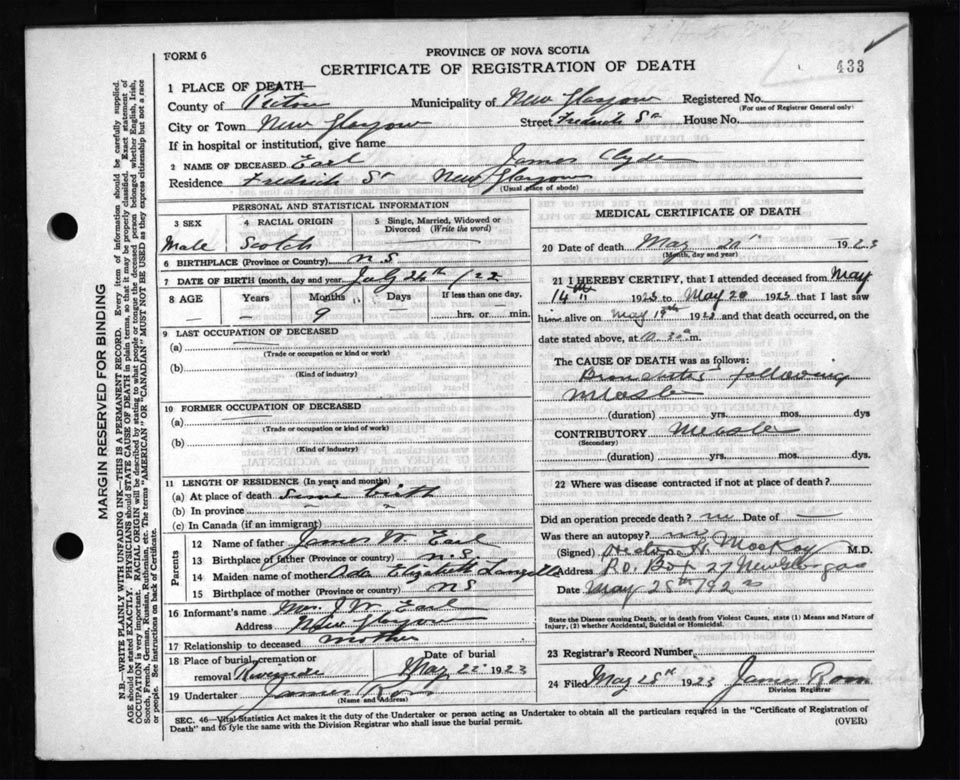 433
FORM 6
PROVINCE OF NOVA SCOTIA
CERTIFICATE OF REGISTRATION OF DEATH
1 PLACE OF DEATH—
County of Pictou Municipality of New Glasgow Registered No.
(For use of Registrar General only)
City or Town New Glasgow Street Fredrick St House No.
If in hospital or institution, give name
2 NAME OF DECEASED Earl James Clyde
Residence Fredrick St New Glasgow
(Usual place of abode)
PERSONAL AND STATISTICAL INFORMATION
3 SEX 4 RACIAL ORIGIN 5 Single, Married, Widowed or Divorced (Write the word)
Male Scotch
6 BIRTHPLACE (Province or Country) N.S
7 DATE OF BIRTH (month, day and year) July 26th /22
8 AGE Years Months Days If less than one day,
— — 9 hrs. or min.
9 LAST OCCUPATION OF DECEASED
(a)
(Trade or occupation or kind or work)
(b)
(Kind of industry)
10 FORMER OCCUPATION OF DECEASED
(a)
(Trade or occupation or kind or work)
(b)
(Kind of industry)
11 LENGTH OF RESIDENCE (In years and months)
(a) At place of death Since birth
(b) In province " "
(c) In Canada (if an immigrant)
Parents
12 Name of father James W Earl
13 Birthplace of father (Province or country) N.S.
14 Maiden name of mother Ada Elizabeth
15 Birthplace of mother (Province or country) NS
16 Informant's name Mrs. J W Earl
Address New Glasgow
17 Relationship to deceased mother
18 Place of burial, cremation or removal Riverside Date of burial May 22 1923
19 Undertaker James Ross
(Name and Address)
MEDICAL CERTIFICATE OF DEATH
20 Date of death May 20th 1923
(Month, day and year)
21 I HEREBY CERTIFY, that I attended deceased from May
14th 1923 to May 20 1923 that I last saw
him alive on May 19th 1923 and that death occurred, on the
date stated above, at 10.30 a m.
The CAUSE OF DEATH was as follows:
Bronchitis following
Measles
(duration) yrs. mos. dys
CONTRIBUTORY Measles
(Secondary)
(duration) yrs. mos. dys.
22 Where was disease contracted if not at place of death?
Did an operation precede death? no Date of —
Was there an autopsy? no
(Signed) MacKay M.D.
Address P.O. Box 27 New Glasgow
Date May 25th 192
State the Disease causing Death, or in death from Violent Causes, state (1) Means and Nature of
Injury, (2) whether Accidental, Suicidal or Homicidal.
23 Registrar's Record Number
24 Filed May 28th 1923 James Ross
Division Registrar
SEC. 46—Vital Statistics Act makes it the duty of the Undertaker or person acting as Undertaker to obtain all the particulars required in the "Certificate of Registration of
Death" and to fyle the same with the Division Registrar who shall issue the burial permit. (OVER)
MARGIN RESERVED FOR BINDING
N.B.—WRITE PLAINLY WITH UNFADING INK—THIS IS A PERMANENT RECORD. Every item of information should be carefully supplied.
AGE should be stated EXACTLY. PHYSICIANS should STATE CAUSE OF DEATH in plain terms, so that it may be properly classified. Exact statement of
OCCUPATION is very important. RACIAL ORIGIN will be described by stating to what people or tongue the deceased person belonged whether English, Irish,
Scotch, French, German, Russian, Ruthenian, etc. The terms "AMERICAN" OR "CANADIAN" MUST NOT BE USED as they express citizenship but not a race
or people. See instructions on back of Certificate.